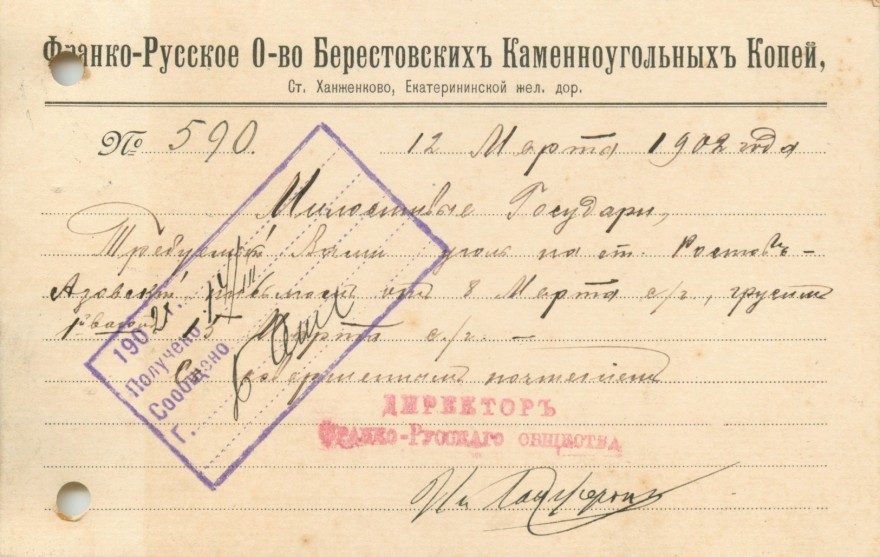 Франко-Русское О-во Берестовскихъ Каменноугольныхъ Копей,
Ст. Ханженково, Екатерининской жел. дор.
№ 590. 12 Марта 1902 года
Милостивые Государи,
Требуемый Вами уголь на ст. Ростовъ-
Азовскій письмомъ отъ 8 Марта с/г, грузимъ
1 вагон 13 Марта с/г. –
Съ совершеннымъ почтеніемъ
ДИРЕКТОРЪ
Франко-Русскаго общества
1902 г.
Получено 14/III
Сообщено
Г.